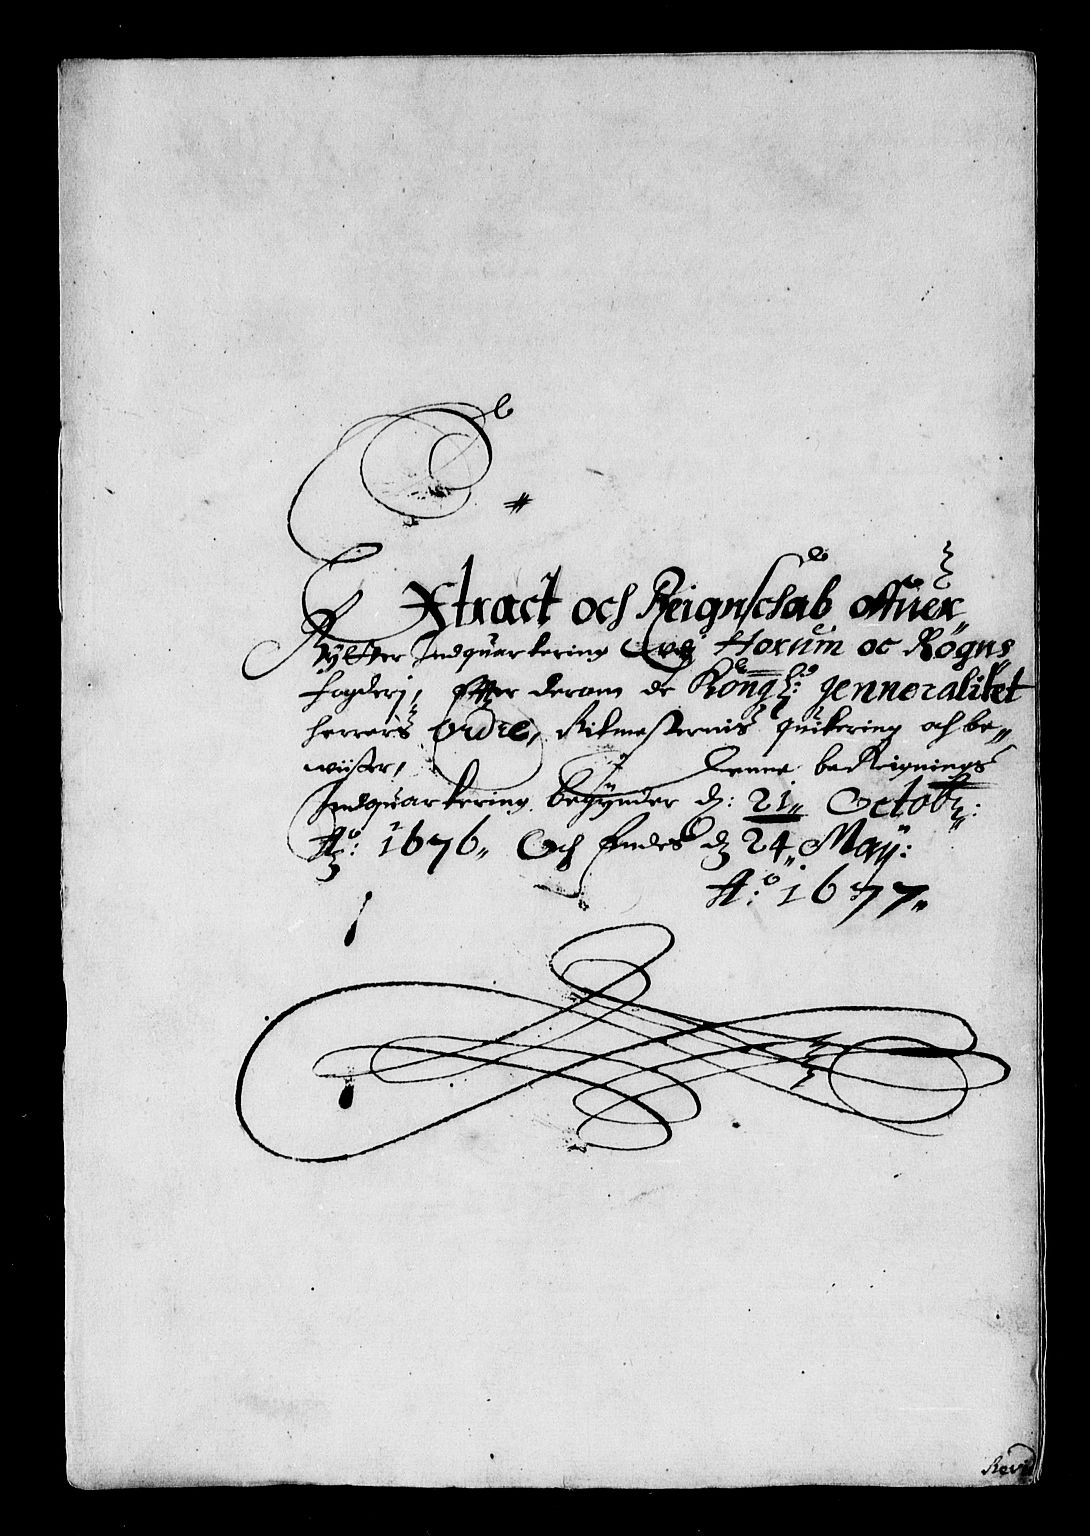 Extract och Reignschab offuer
Rÿtter Indquartering Offuer Horum oc Rögnes
fogderj, Efter derom de Kongl: Jenneralitet
herrers Ordre, Ritmesternis quitering och be-
wiiser, Denne be Reignings
Indquartering begynder d: 21 Octob:
Ao: 1676 Och Endes d 24 Maÿ:
Ao: 1677
Revi